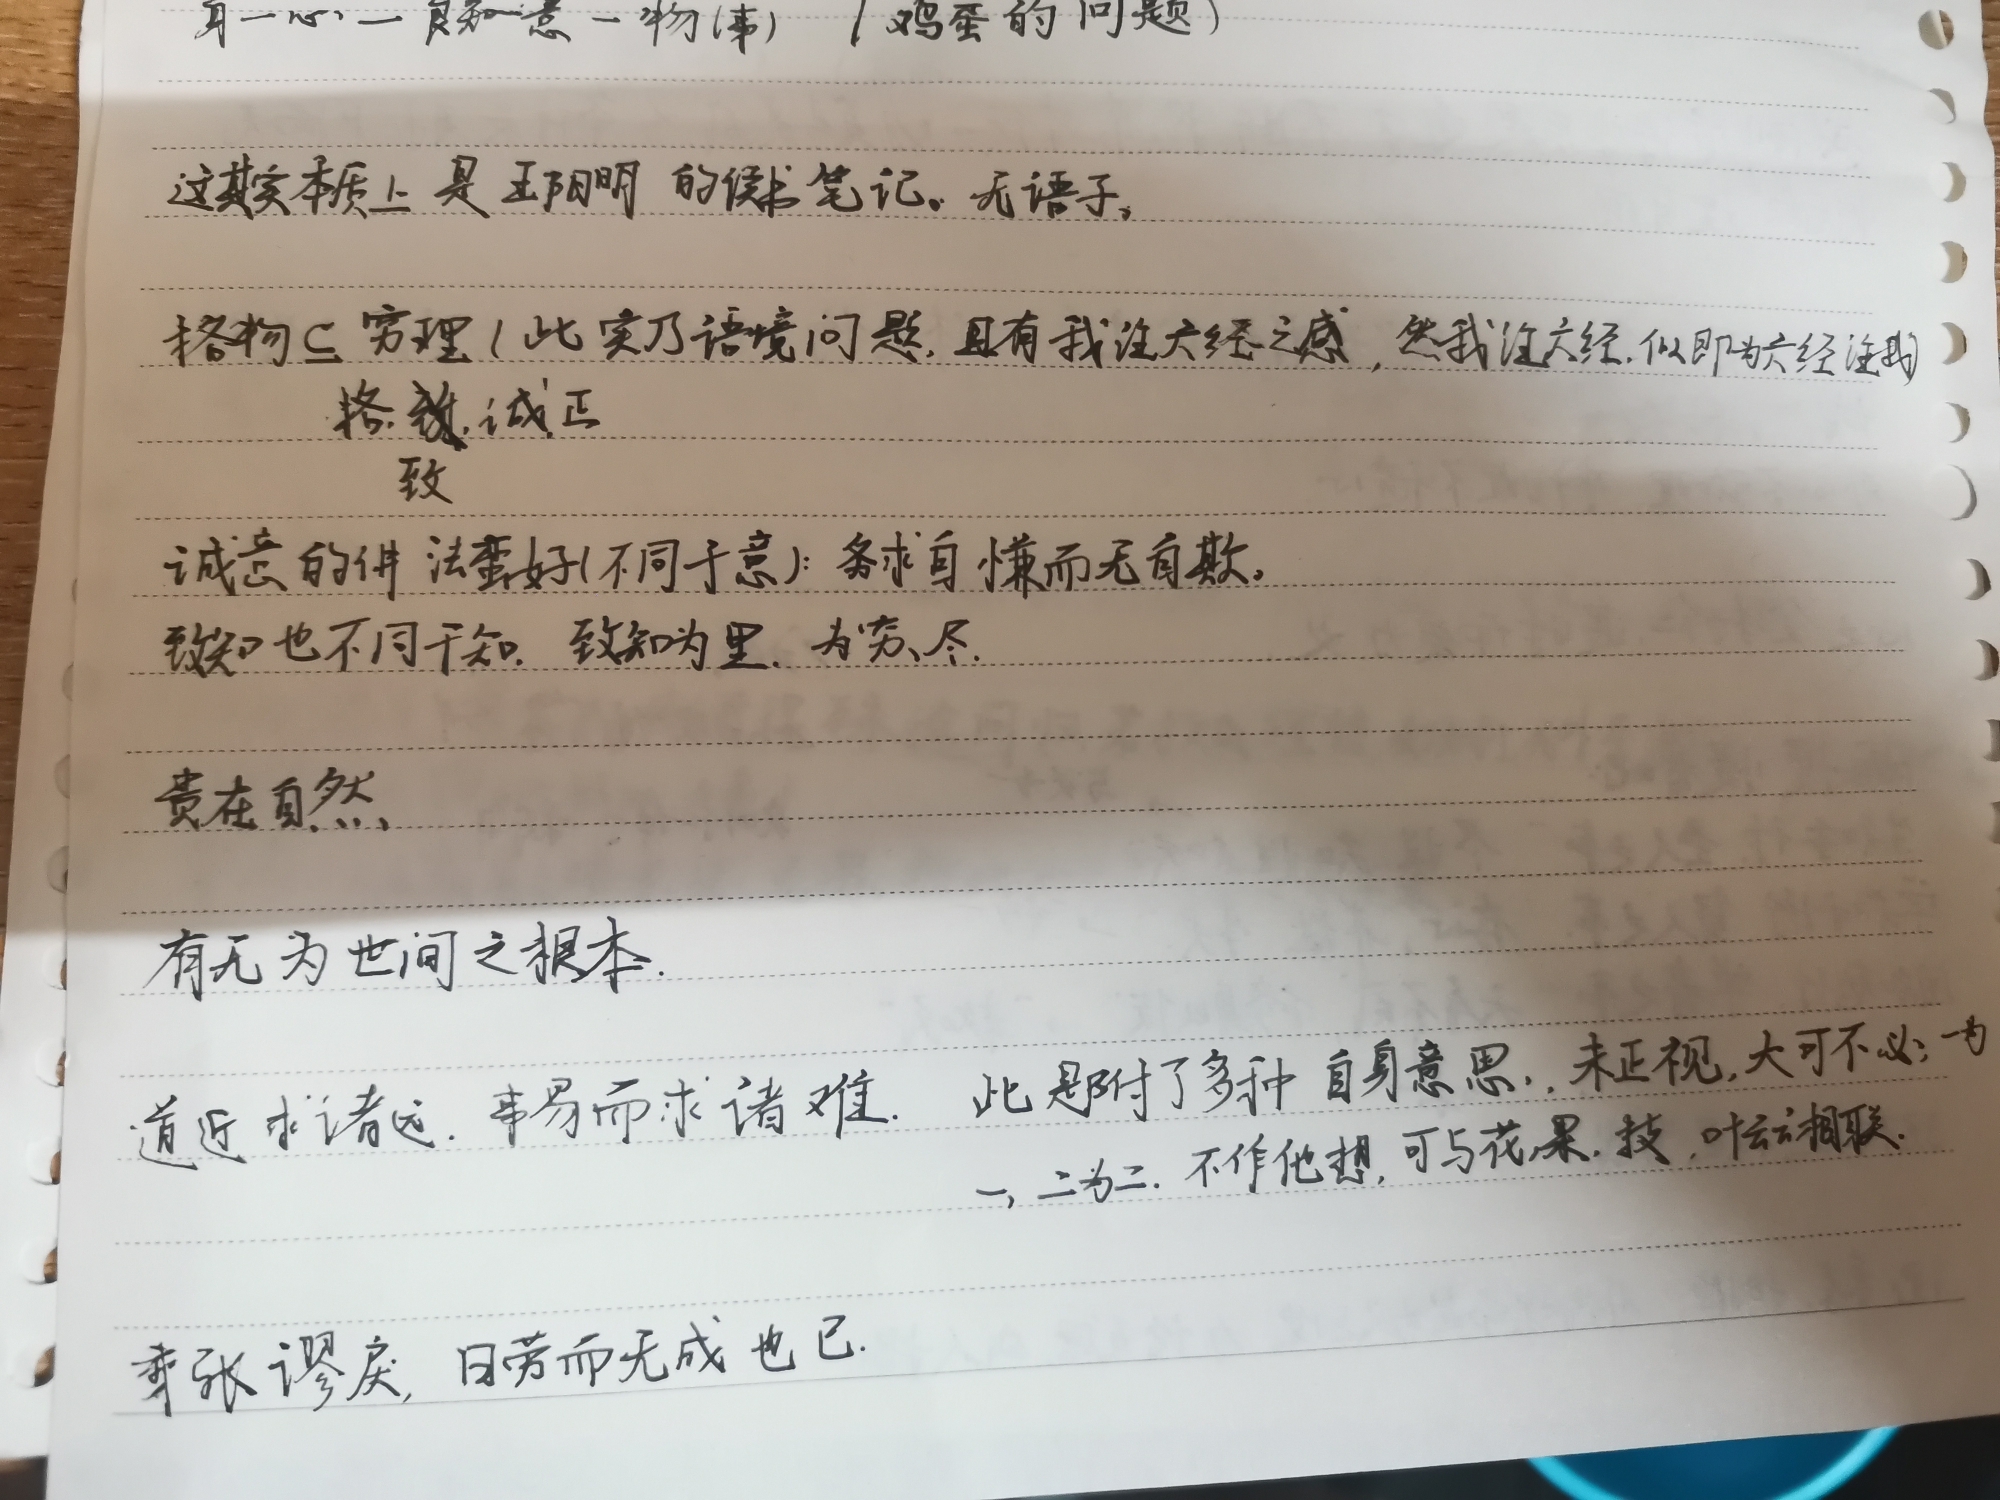 身一心一良知一意一物(事) (鸡蛋的问题)
这其实本质上是王阳明的读书笔记。无语子。
格物⊆穷理(此实乃语境问题,且有我注六经之感,然我注六经.似即为六经注我)
格.致.诚.正
致
诚意的讲法蛮好(不同于意):务求自慊而无自欺。
致知也不同于知.致知为里.为穷、尽.
贵在自然、
有无为世间之根本.
道近求诸远.事易而求诸难.
此是附了多种自身意思,未正视,大可不必;一为
一,二为二.不作他想,可与花、果.枝,叶云云相联.
乖张谬戾,日劳而无成也已.